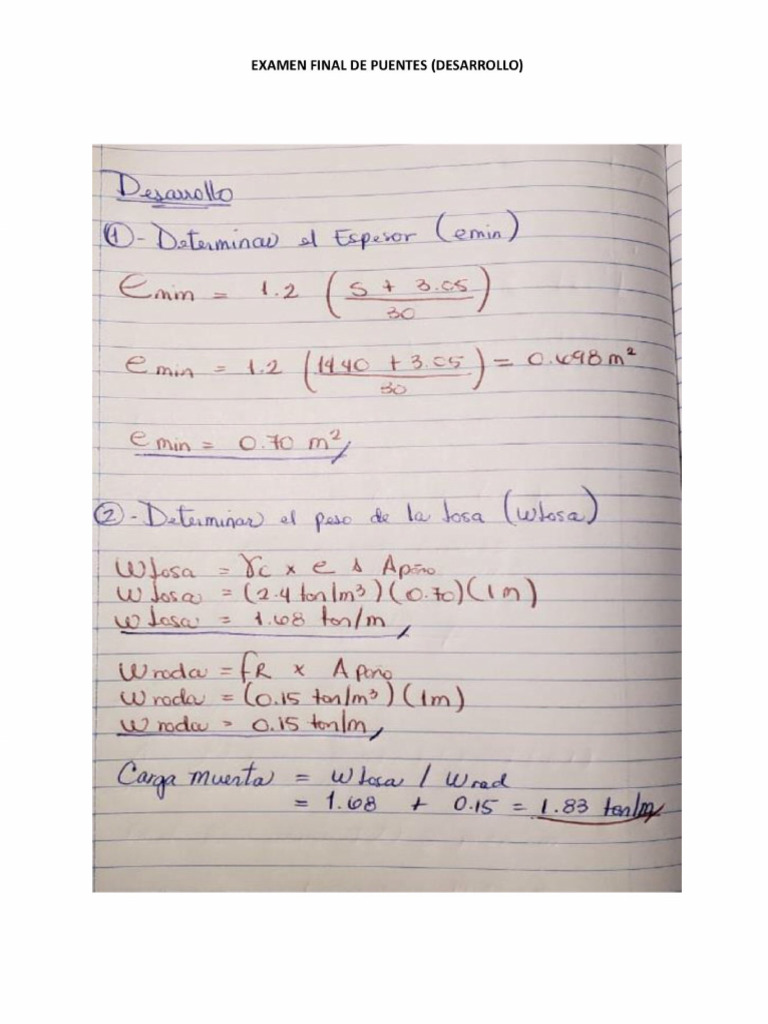 EXAMEN FINAL DE PUENTES (DESARROLLO)
Desarrollo
① - Determinar el Espesor (emin)
emin = 1.2 ( S + 3.05 / 30 )
emin = 1.2 ( 14.40 + 3.05 / 30 ) = 0.698 m²
emin = 0.70 m²
② - Determinar el peso de la losa (wlosa)
W losa = γc x e x A paño
W losa = (2.4 ton/m³) (0.70) (1m)
W losa = 1.68 ton/m
W roda = fR x A paño
W roda = (0.15 ton/m³) (1m)
W roda = 0.15 ton/m
Carga muerta = W losa / W rod
= 1.68 + 0.15 = 1.83 ton/m